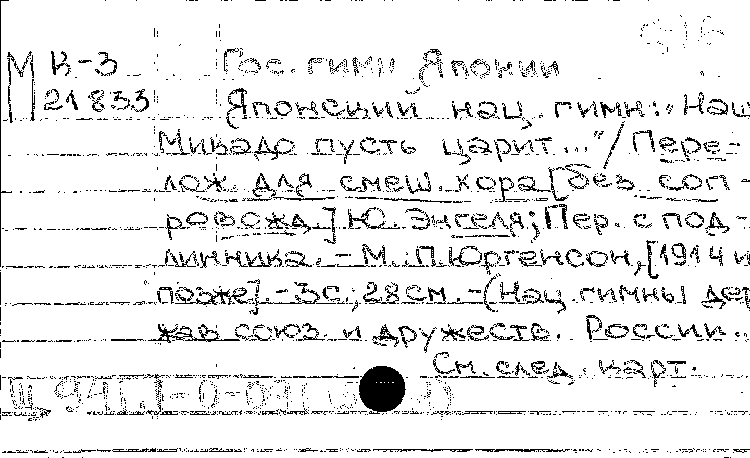 М К-3 Гос. гимн Японии
21833 Японский нац. гимн: "Наш
Микадо пусть царит..." / Пере-
лож. для смеш. хора [без соп-
ровожд.] Ю. Энгеля; Пер. с под-
линника. - М.: П. Юргенсон, [1914 и
позже]. - 3 с.; 28 см. - (Нац. гимны дер
жав союз. и дружеств. России..
См. след. карт.
Щ 941.1-0-